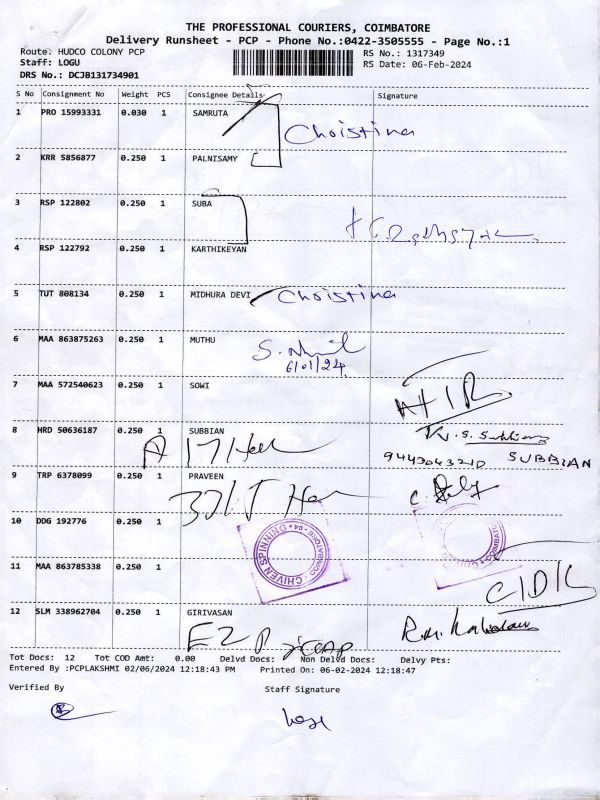 THE PROFESSIONAL COURIERS, COIMBATORE
Delivery Runsheet - PCP - Phone No.:0422-3505555 - Page No.:1
Route: HUDCO COLONY PCP
RS No.: 1317349
Staff: LOGU
RS Date: 06-Feb-2024
DRS No.: DCJB131734901
S No Consignment No Weight PCS Consignee Details Signature
1 PRO 15993331 0.030 1 SAMRUTA
Christina
2 KRR 5856877 0.250 1 PALNISAMY
3 RSP 122802 0.250 1 SUBA
4 RSP 122792 0.250 1 KARTHIKEYAN
5 TUT 808134 0.250 1 MIDHURA DEVI Christina
6 MAA 863875263 0.250 1 MUTHU
6/01/24
7 MAA 572540623 0.250 1 SOWI
8 HRD 50636187 0.250 1 SUBBIAN
SUBBIAN
9 TRP 6378099 0.250 1 PRAVEEN
10 DDG 192776 0.250 1
CHIVEN SPINNING COIMBATORE - 04
11 MAA 863785338 0.250 1
12 SLM 338962704 0.250 1 GIRIVASAN
Tot Docs: 12 Tot COD Amt: 0.00 Delvd Docs: Non Delvd Docs: Delvy Pts:
Entered By :PCPLAKSHMI 02/06/2024 12:18:43 PM Printed On: 06-02-2024 12:18:47
Verified By
Staff Signature